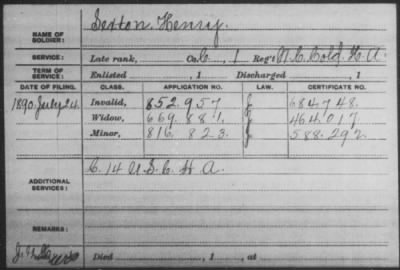 NAME OF SOLDIER: Sexton, Henry.
SERVICE: Late rank, Co. C, 1 Reg't N.C. Cold. H.A.
TERM OF SERVICE: Enlisted , 1 Discharged , 1
DATE OF FILING. CLASS. APPLICATION NO. LAW. CERTIFICATE NO.
1890. July 24. Invalid, 852.957 J 684748.
Widow, 669.881. 464.017
Minor, 816.823. J 588.292
ADDITIONAL SERVICES: C. 14 U.S.C. H.A.
REMARKS:
Died , 1 , at